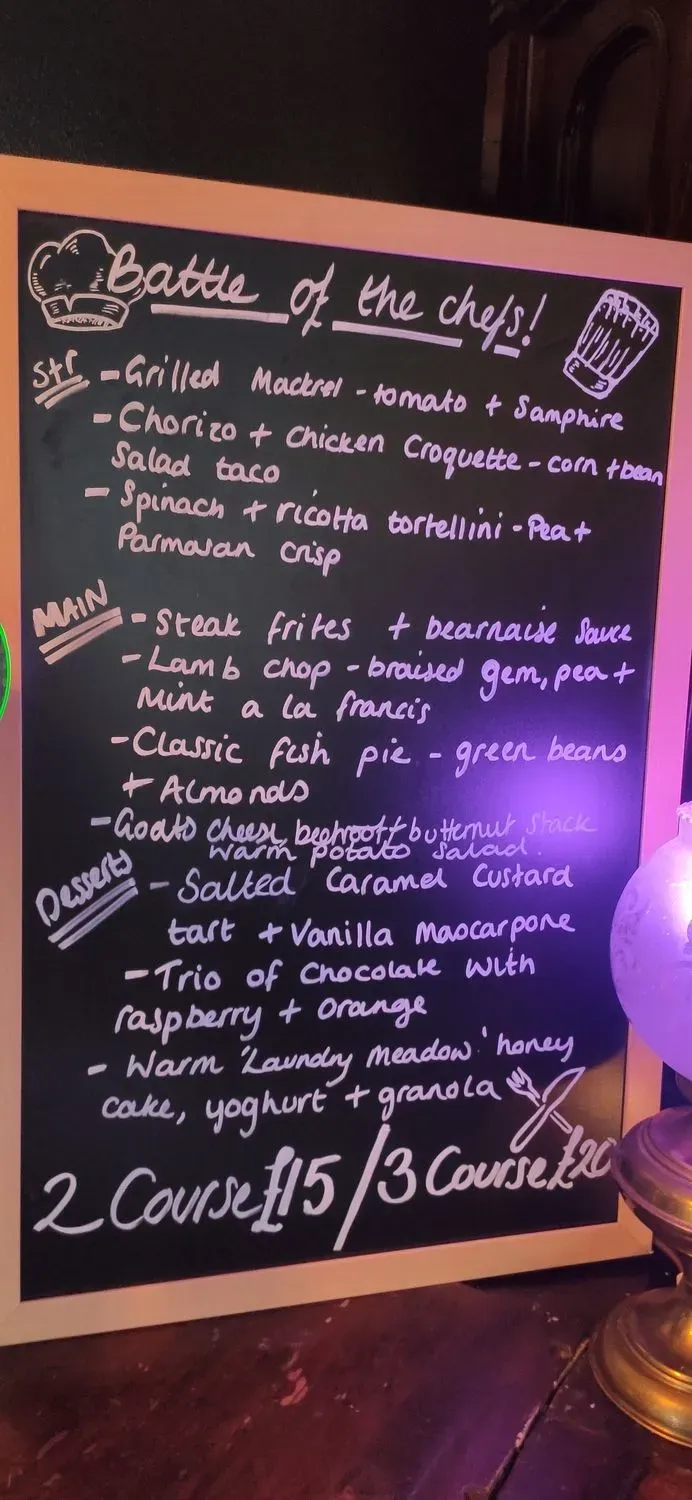 Battle of the chefs!
Str - Grilled Mackrel - tomato + Samphire
- Chorizo + Chicken Croquette - corn + bean
Salad taco
- Spinach + ricotta tortellini - Pea +
Parmasan crisp
MAIN - Steak frites + bearnaise Sauce
- Lamb chop - braised gem, pea +
Mint a la francis
- Classic fish pie - green beans
+ Almonds
- Goats cheese beetroot + butternut Stack
warm potato Salad.
Desserts - Salted Caramel Custard
tart + Vanilla Mascarpone
- Trio of Chocolate with
raspberry + Orange
- Warm 'Laundry Meadow' honey
cake, yoghurt + granola
2 Course £15 / 3 Course £20